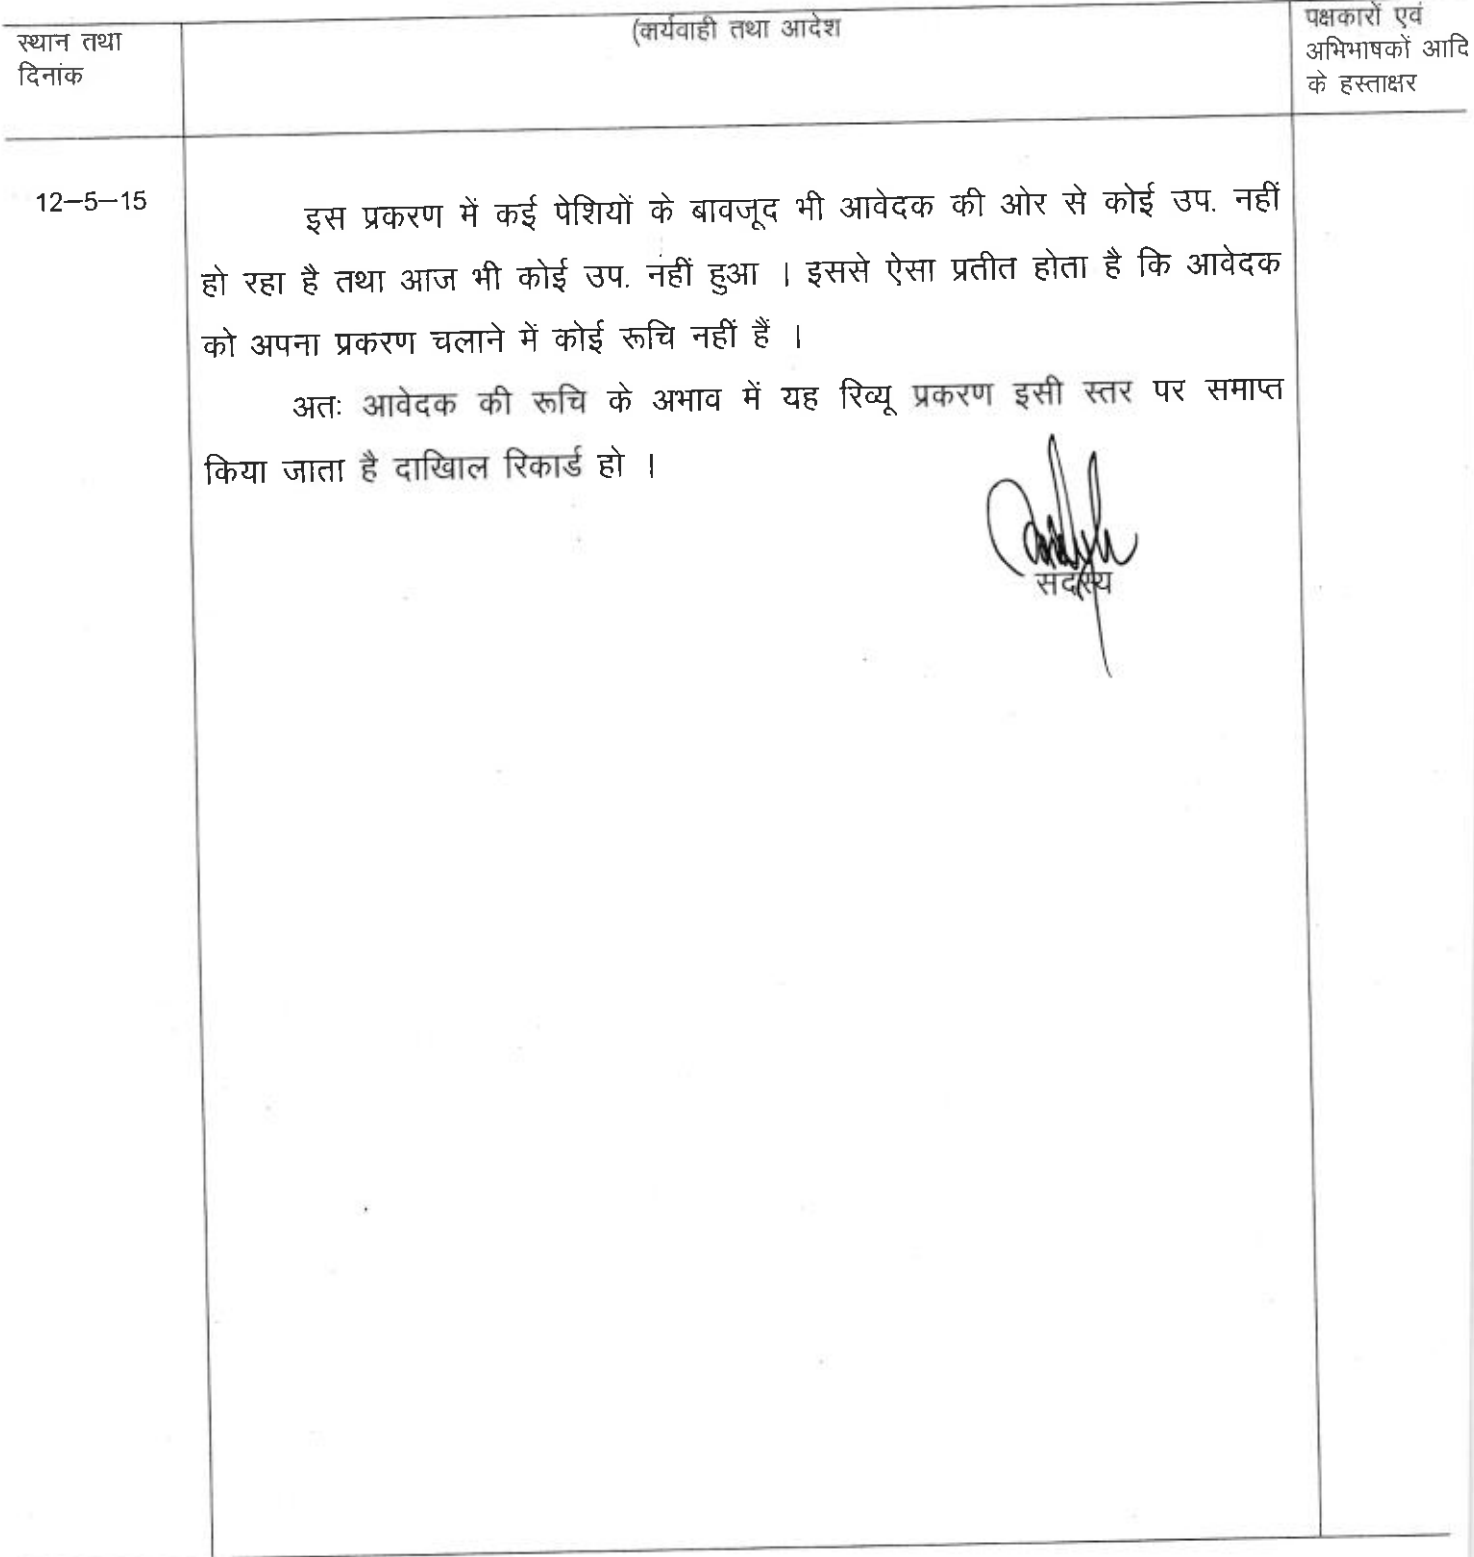 स्थान तथा
दिनांक
(कार्यवाही तथा आदेश
पक्षकारों एवं
अभिभाषकों आदि
के हस्ताक्षर
12–5–15
इस प्रकरण में कई पेशियों के बावजूद भी आवेदक की ओर से कोई उप. नहीं
हो रहा है तथा आज भी कोई उप. नहीं हुआ । इससे ऐसा प्रतीत होता है कि आवेदक
को अपना प्रकरण चलाने में कोई रूचि नहीं हैं ।
अतः आवेदक की रूचि के अभाव में यह रिव्यू प्रकरण इसी स्तर पर समाप्त
किया जाता है दाखिाल रिकार्ड हो ।
सदस्य